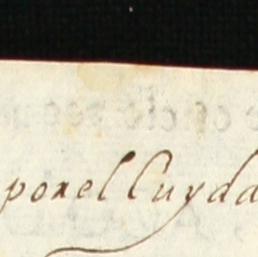 por el Cuydad